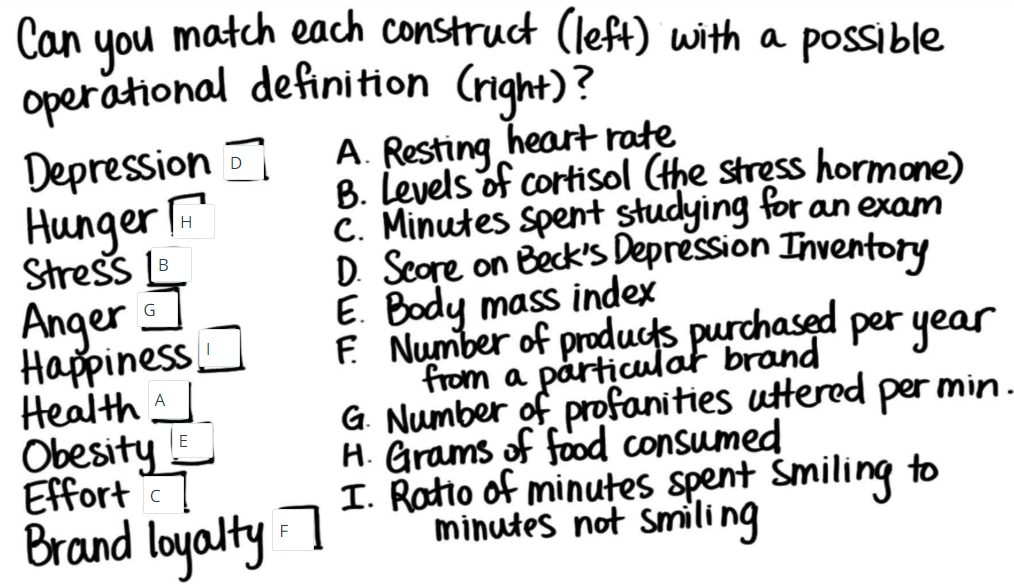 Can you match each construct (left) with a possible
operational definition (right)?
Depression D
Hunger H
Stress B
Anger G
Happiness I
Health A
Obesity E
Effort C
Brand loyalty F
A. Resting heart rate
B. Levels of cortisol (the stress hormone)
C. Minutes spent studying for an exam
D. Score on Beck's Depression Inventory
E. Body mass index
F. Number of products purchased per year
from a particular brand
G. Number of profanities uttered per min.
H. Grams of food consumed
I. Ratio of minutes spent smiling to
minutes not smiling